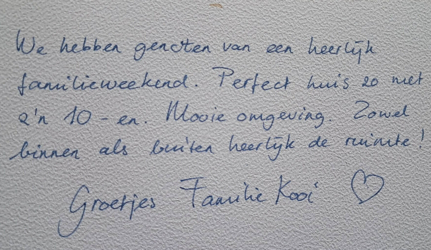 We hebben genoten van een heerlijk
familieweekend. Perfect huis zo met
z'n 10-en. Mooie omgeving. Zowel
binnen als buiten heerlijk de ruimte!
Groetjes Familie Kooi